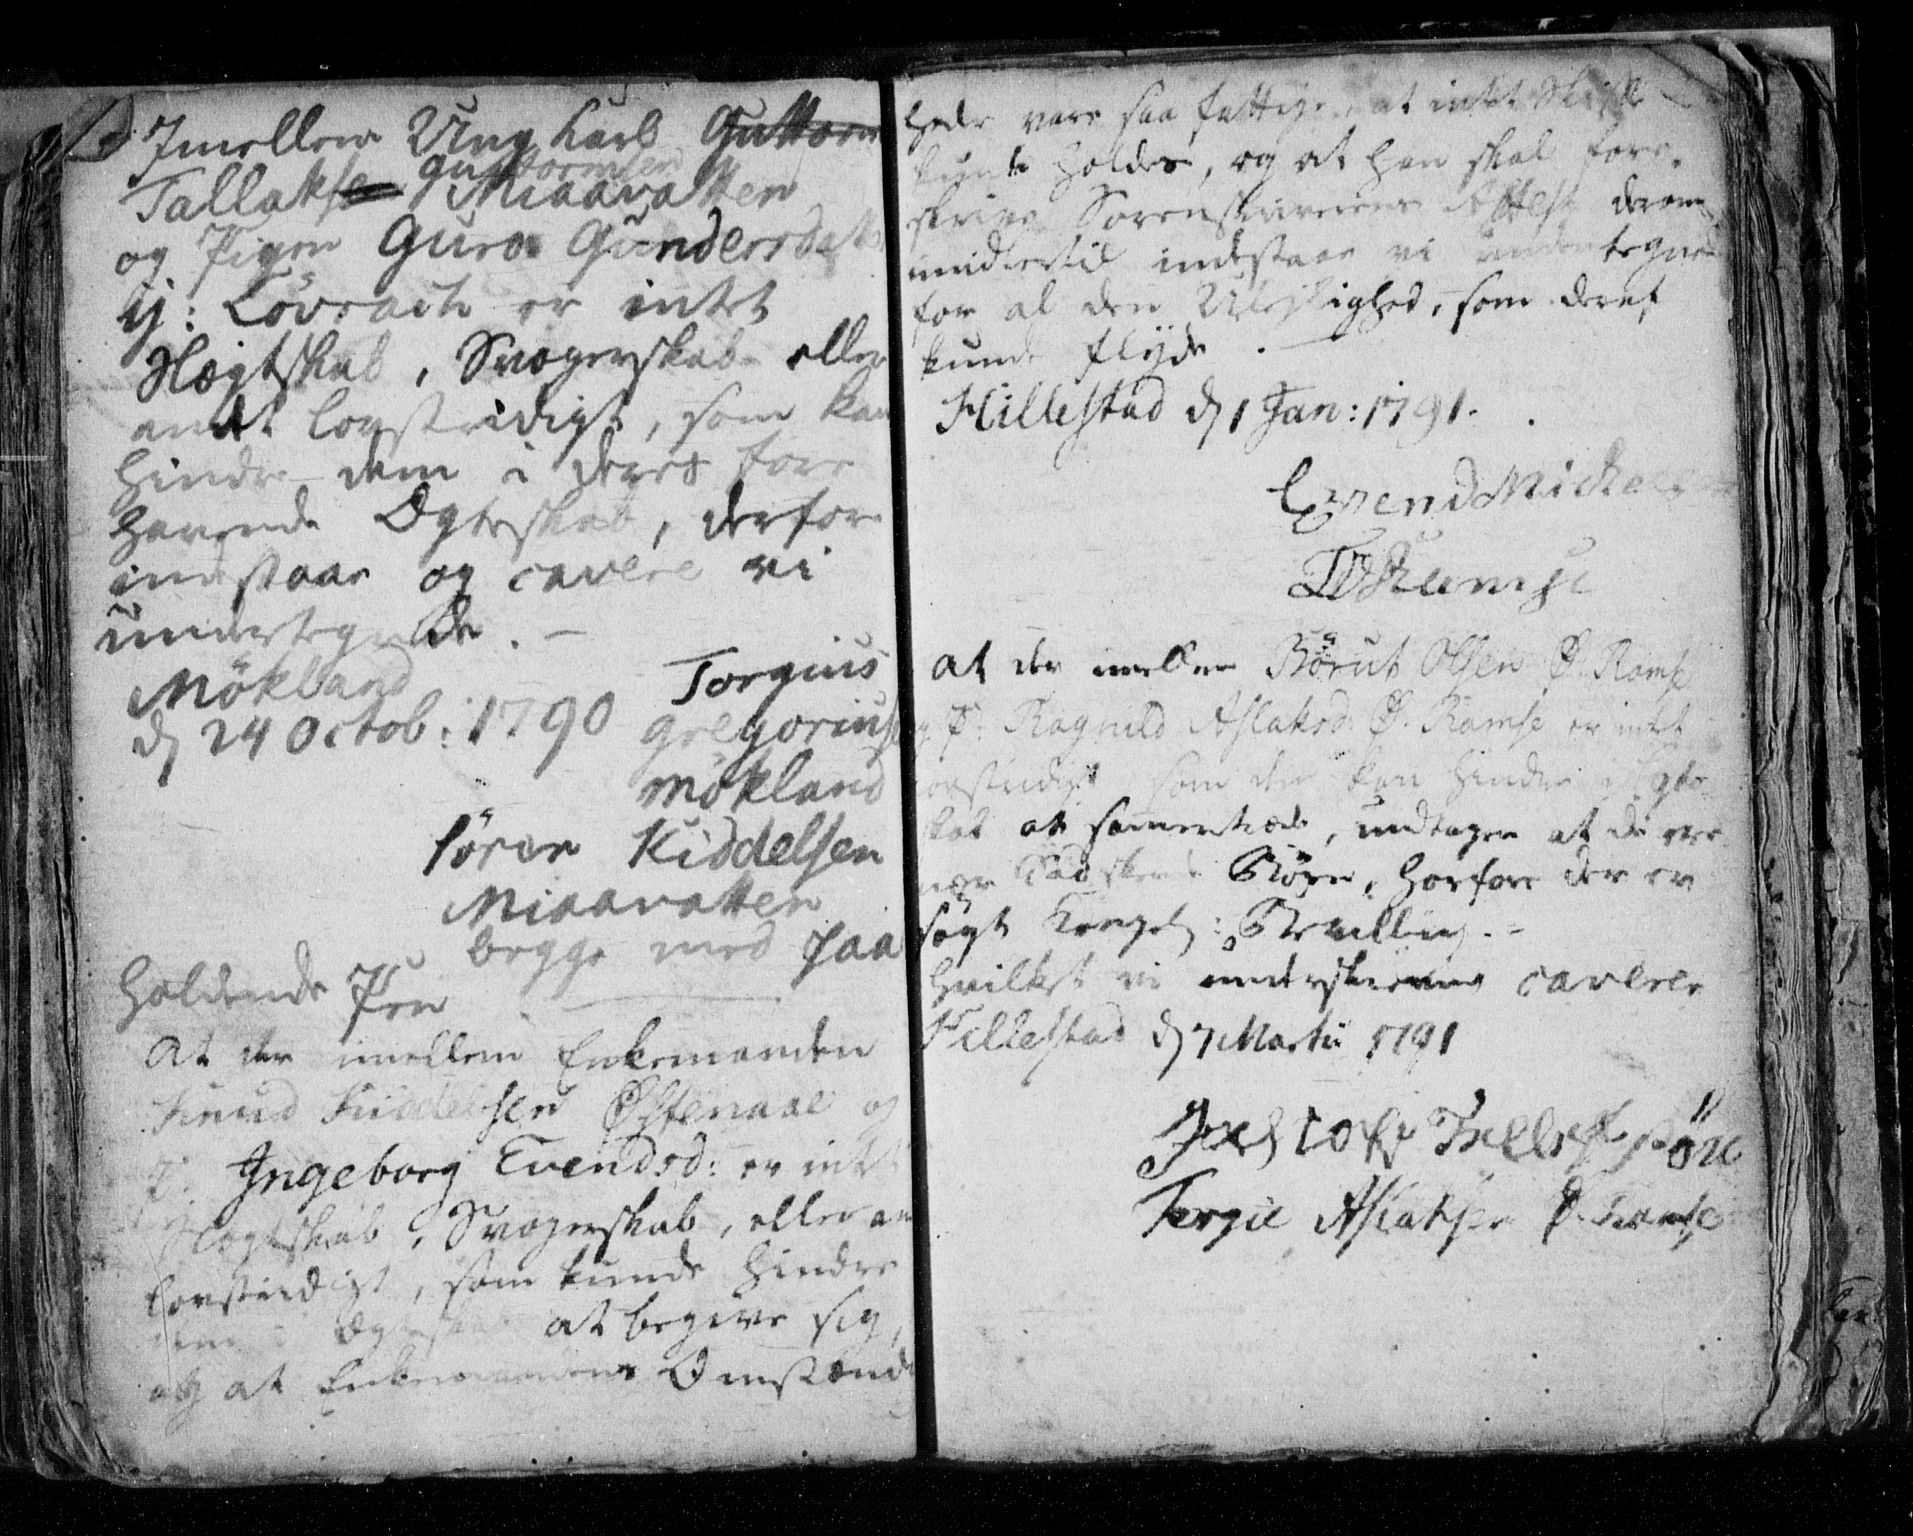 Imellem Ung Karl Guttorm
Guttormsen
Tallakse Miaavatten
og Pigen Guro Gundersdatt
ij: Lövraak er intet
Slægtskab, Svogerskab eller
andt lovstridigt, som kan
hindre dem i deres fore
havende Ægteskab, derfor
indstaar og cavere vi
undertegnede. -
Mökland
d 24 Octob: 1790
Torgius
Gregoriuse
Mökland
Sören Kiddelsen
Miaavatten
begge med paa
holdende Pen
At der imellem Enkemanden
Knud Kiddelsen Østenaae og
P. Ingeborg Evendsd: er intet
Slægtskab, Svogerskab, eller an
lovstridigt, som kunde hindre
dem i Ægteskab at begive sig,
og at Enkemandens Omstænd
heder vare saa fattige, at intet Skifte
kunde holdes, og at han skal fore.
skrive Sorenskriverens Attest derom
imidlertid indestaar vi undertegne
for al den Uleylighed, som deraf
kunde flyde. -
Hillestad d 1 Jan: 1791.
Evend Mickels
At der imellem Börut Olsen Ø. Ramse
og P: Ragnild Aslaksd. Ø. Ramse er intet
lovstridigt som dem kan hindre i Ægte
skab at sammentræde, undtagen at de ere
nær Sødskende Börn, hvorfore der er
søgt Kongel: Bevilling. -
hvilket vi underskrevne caverer
Hillestad d 7 Martii 1791
Tergie Aslaksen Ø. Ramse